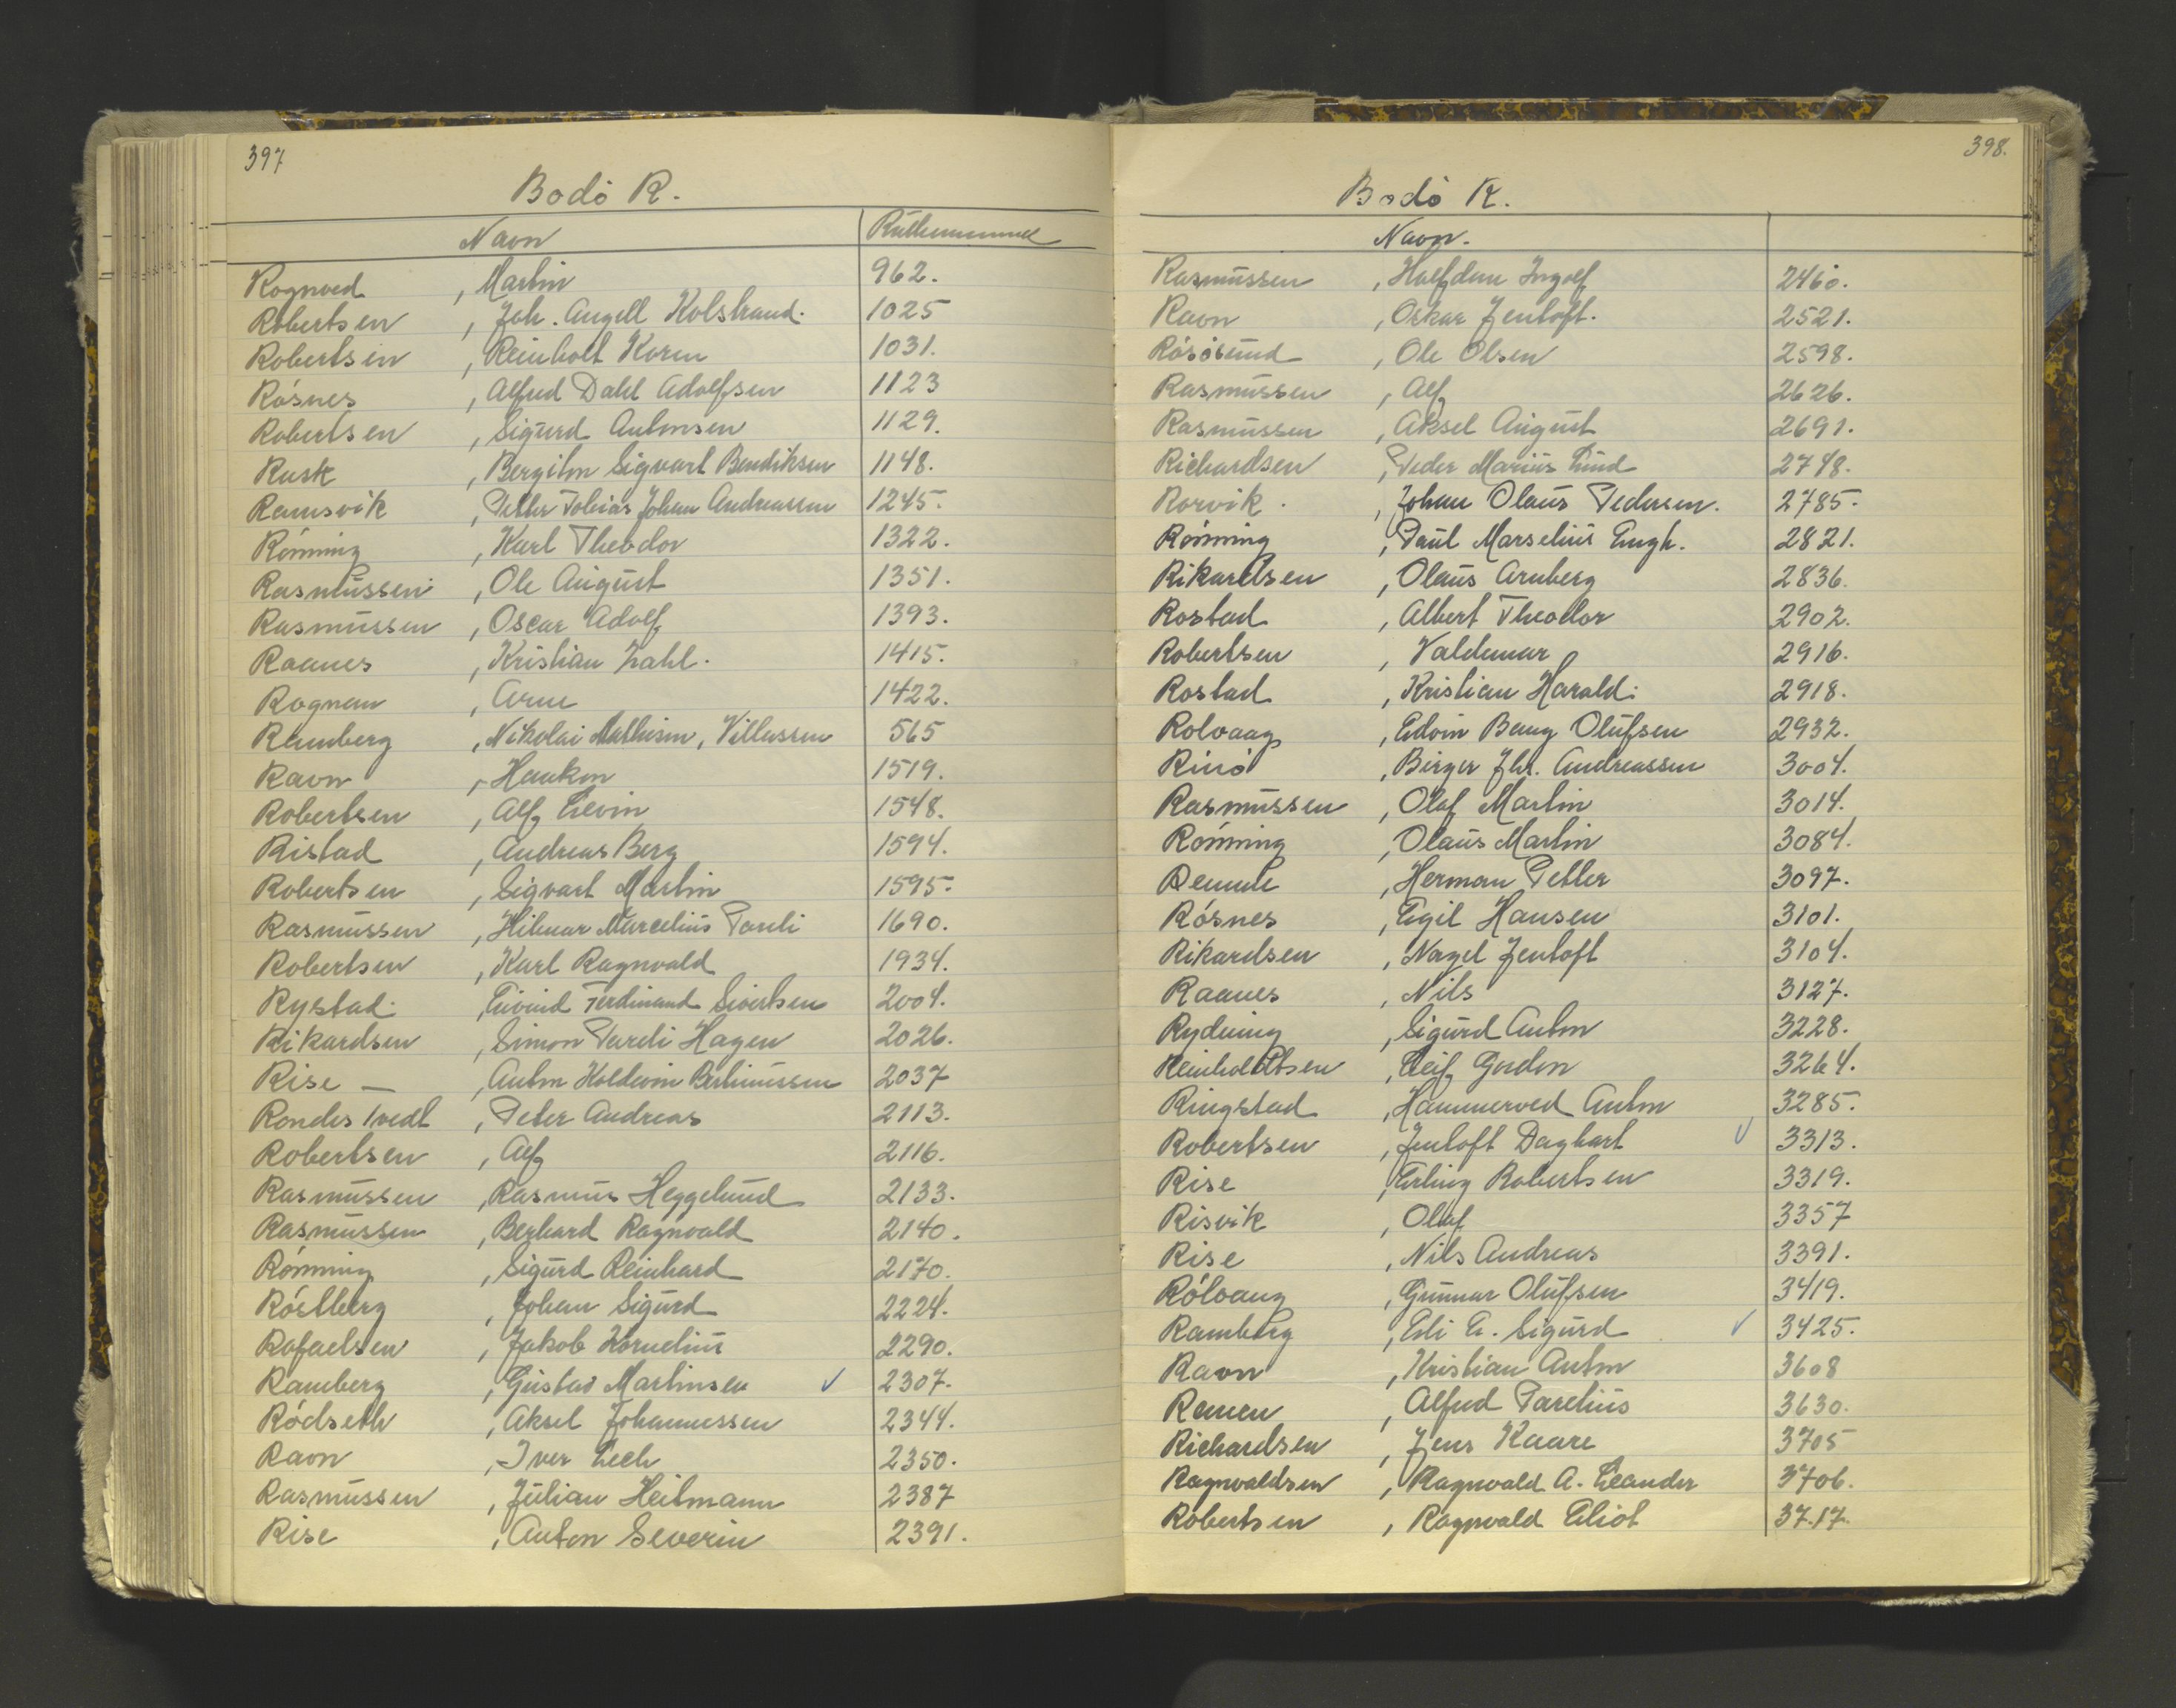 397
Bodó R.
Navn Rullenummer
Rognved, Martin 962.
Robertsen, Joh. Angell Kolstrand. 1025
Robertsen, Reinholt Koren 1031.
Rósnes, Alfred Dahl Adolfsen 1123
Robertsen, Sigurd Antonsen 1129.
Rusk, Bergiton Sigvart Bendiksen 1148.
Ramsvik, Petter Tobias Johan Andreassen 1245.
Rónning, Karl Theodor 1322.
Rasmussen, Ole August 1351.
Rasmussen, Oscar Adolf 1393.
Raanes, Kristian Zahl. 1415.
Rognan, Arne 1422.
Ramberg, Nikolai Mathisen, Villassen 565
Ravn, Haakon 1519.
Robertsen, Alf Levin 1548.
Ristad, Andreas Berg 1594.
Robertsen, Sigvart Martin 1595.
Rasmussen, Hilmar Marcelius Pareli 1690.
Robertsen, Karl Ragnvald 1934.
Rystad, Eivind Ferdinand Sivertsen 2004.
Rikardsen, Simon Pareli Hagen 2026.
Rise —, Anton Koldevin Bertinussen 2037
Rondestvedt, Peter Andreas 2113.
Robertsen, Alf 2116.
Rasmussen, Rasmus Heggelund 2133.
Rasmussen, Berhard Ragnvald 2140.
Rónning, Sigurd Reinhard 2170.
Róstberg, Johan Sigurd 2224.
Rafaelsen, Jakob Kornelius 2290.
Ramberg, Gustav Martinsen ✓ 2307.
Ródseth, Aksel Johannessen 2344.
Ravn, Iver Lech 2350.
Rasmussen, Julian Heitmann 2387
Rise, Anton Severin 2391.
398.
Bodó R.
Navn.
Rasmussen, Halfdan Ingolf 2460.
Ravn, Oskar Jentoft. 2521.
Rósósund, Ole Olsen 2598.
Rasmussen, Alf 2626.
Rasmussen, Aksel August 2691.
Richardsen, Peder Marius Lund 2748.
Rorvik, Johan Olaus Pedersen. 2785.
Rónning, Paul Marselius Engh. 2821.
Rikardsen, Olaus Arnberg 2836.
Rostad, Albert Theodor 2902.
Robertsen, Valdemar 2916.
Rostad, Kristian Harald. 2918.
Rolvaag, Edvin Bang Olufsen 2932.
Rinó, Birger Jhr. Andreassen 3004.
Rasmussen, Olaf Martin 3014.
Rónning, Olaus Martin 3084.
Remle, Herman Petter 3097.
Rósnes, Egil Hansen 3101.
Rikardsen, Nagel Jentoft 3104.
Raanes, Nils 3127.
Rydning, Sigurd Anton 3228.
Reinholdtsen, Leif Gordon 3264.
Ringstad, Hammerved Anton 3285.
Robertsen, Jentoft Daghart ✓ 3313.
Rise, Erling Robertsen 3319.
Risvik, Olaf 3357
Rise, Nils Andreas 3391.
Rólvaag, Gunnar Olufsen 3419.
Ramberg, Edi E. Sigurd ✓ 3425.
Ravn, Kristian Anton 3608
Ramen, Alfred Parelius 3630.
Richardsen, Jens Kaare 3705
Ragnvaldsen, Ragnvald A. Leander 3706.
Robertsen, Ragnvald Eliot 3717.